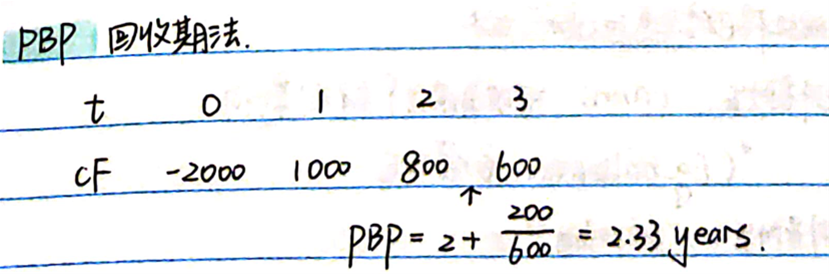 PBP 回收期法.
t 0 1 2 3
CF -2000 1000 800 600
↑
PBP = 2 + 200/600 = 2.33 years.